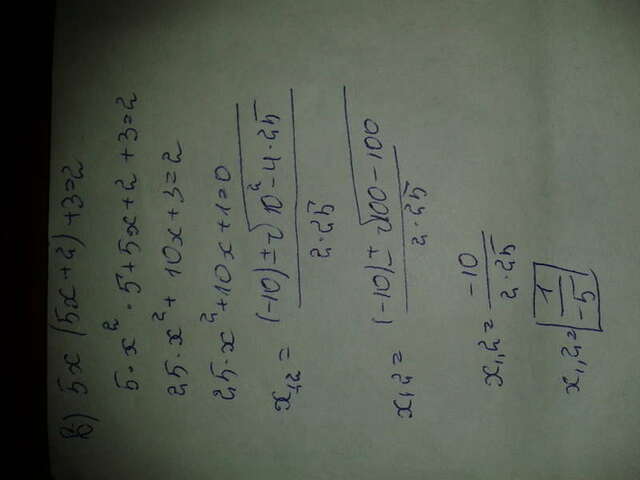 б) 5x (5x+2) +3=2
5·x²·5+5x+2+3=2
25·x²+10x+3=2
25·x²+10x+1=0
x₁,₂ = (-10)±√10²-4·25 / 2·25
x₁,₂ = (-10)±√100-100 / 2·25
x₁,₂ = -10 / 2·25
x₁,₂ = 1 / -5